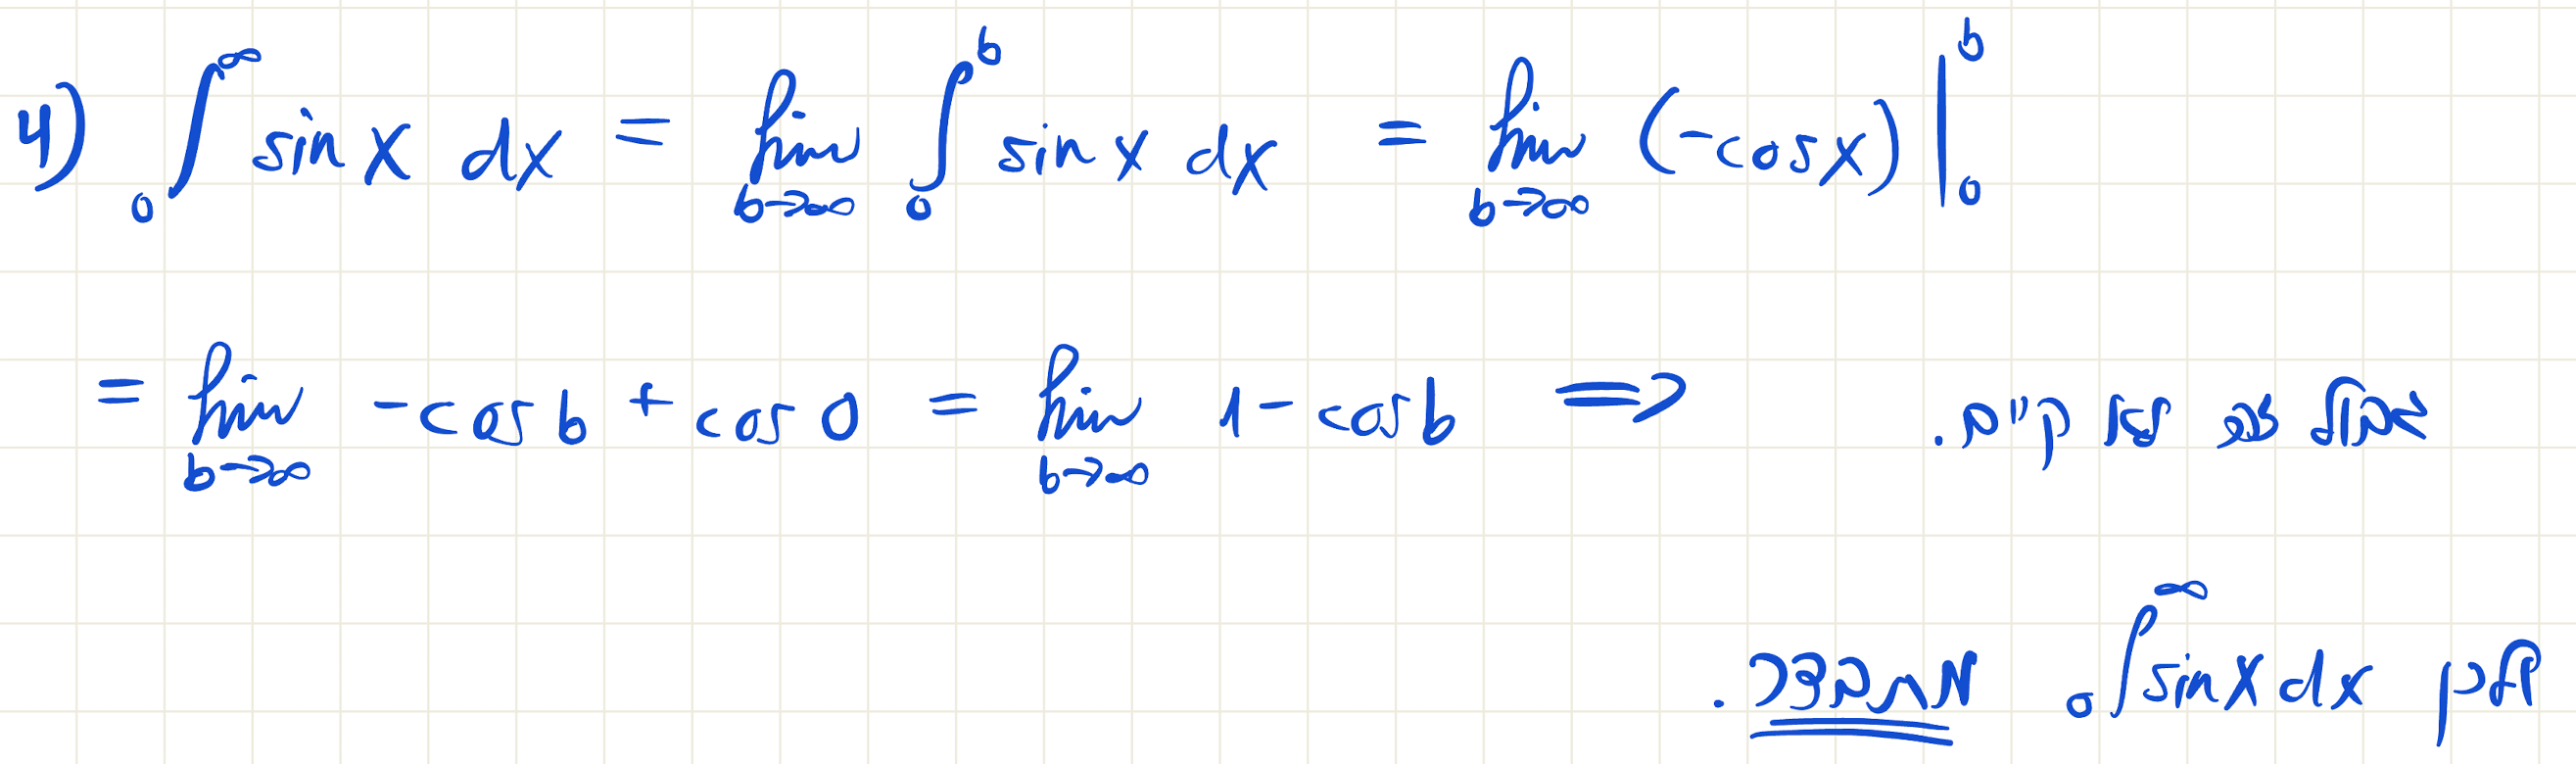 4) ∫₀^∞ sin x dx = lim_{b→∞} ∫₀^b sin x dx = lim_{b→∞} (-cos x) |₀^b
= lim_{b→∞} -cos b + cos 0 = lim_{b→∞} 1 - cos b ⟹ גבול זה לא קיים.
ולכן ∫₀^∞ sin x dx מתבדר.